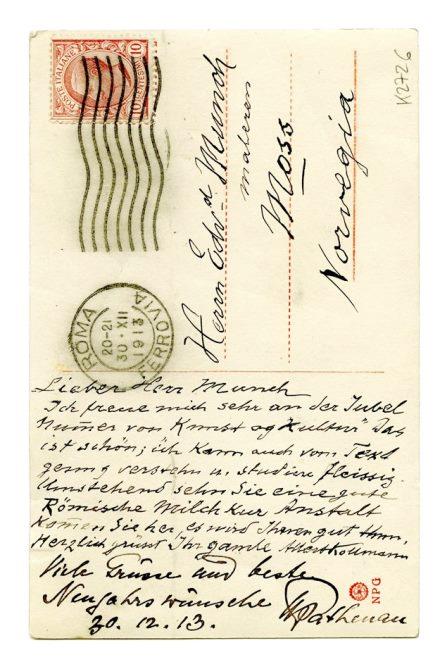 K2726
POSTE ITALIANE
10
ROMA FERROVIA
20-21
30·XII
1913
Herrn Edvd Munch
maleren
Moss
Norvegia
Lieber Herr Munch
Ich freue mich sehr an der Jubel
Numer von Kunst og Kultur" Das
ist schön; ich kann auch vom Text
genug verstehn u. studiere fleissig.
Umstehend sehn Sie eine gute
Römische Milch Kur Anstalt
Komen Sie her, es wird Ihnen gut thun,
Herzlich grüsst Ihr gamle Albert Kollmann
Viele Grüsse und beste
Neujahrswünsche WRathenau
30. 12. 13.
NPG